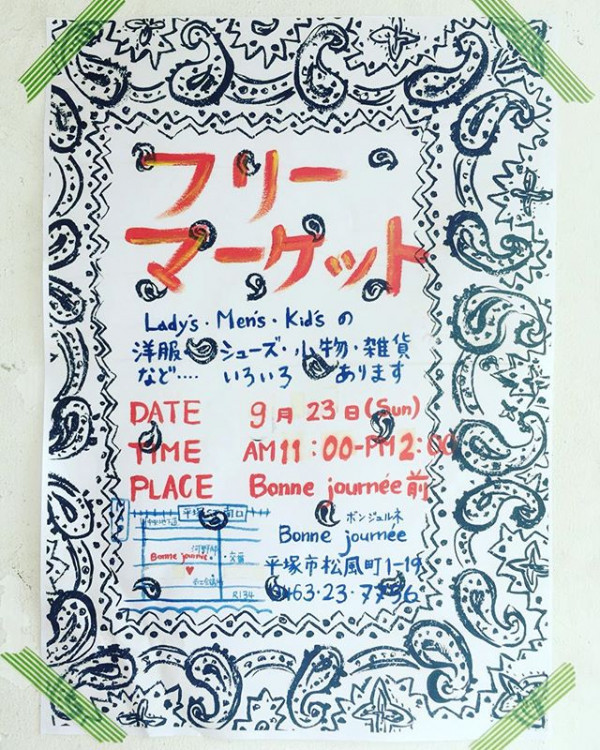 フリー
マーケット
Lady's・Men's・Kid'sの
洋服・シューズ・小物・雑貨
など‥‥ いろいろ あります
DATE 9月23日(Sun)
TIME AM11:00-PM2:00
PLACE Bonne journée前
ボンジュルネ
Bonne journée
平塚市松風町1-19
Bonne journée
交番
R134